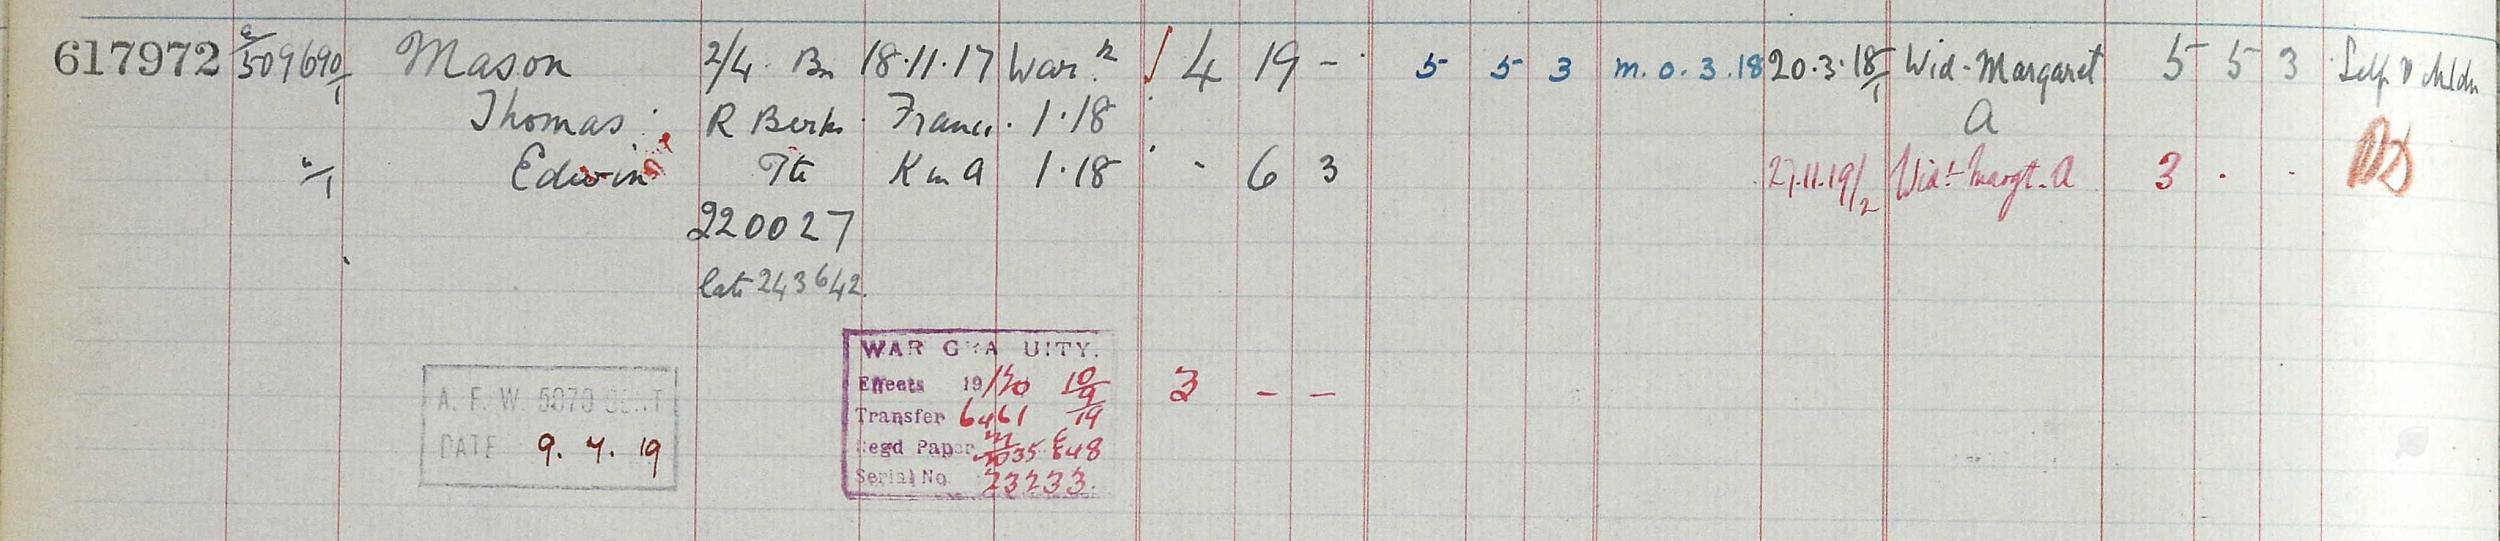 617972 E/509690/1 Mason 2/4 Bn 18.11.17 War. 4 19 - 5 5 3 m.o.3.18 20.3.18/1 Wid. Margaret 5 5 3 Self & chldn
Thomas R Berks France. 1.18 A
Edwin Pte K in A 1.18 - 6 3 27.11.19/2 Wid. Margt. A 3 . .
220027
late 243642.
WAR GRA UITY.
Effects 19/20 10/9/19 3 - -
Transfer 6461
A. F. W. 5070 SENT
Regd Paper
DATE 9. 4. 19
Serial No. 23233.